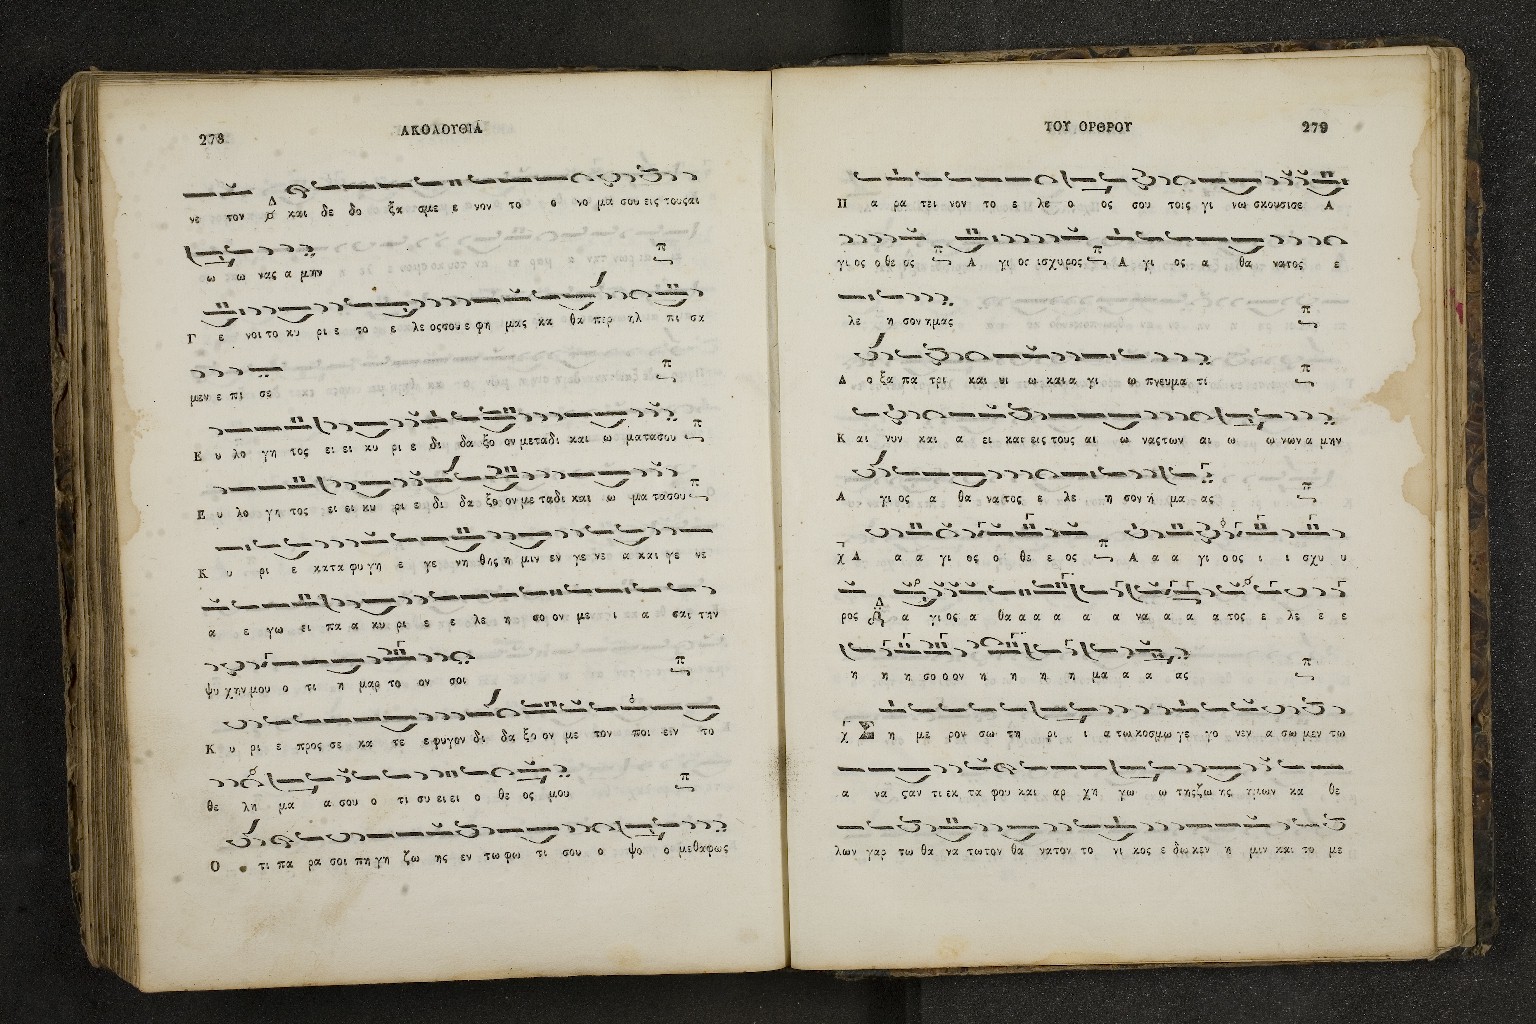 278
ΑΚΟΛΟΥΘΙΑ
νε τον και δε δο ξα σμε ε νον το ο νο μα σου εις τους αι
ω ω νας α μην
Γ ε νοι το κυ ρι ε το ε λε ος σου ε φη μας κα θα περ ηλ πι σα
μεν ε πι σε
Ε υ λο γη τος ει ει κυ ρι ε δι δα ξο ον με τα δι και ω μα τα σου
Ε υ λο γη τος ει ει κυ ρι ε δι δα ξο ον με τα δι και ω μα τα σου
Κ υ ρι ε κα τα φυ γη ε γε νη θης η μιν εν γε νε α και γε νε
α ε γω ει πα α κυ ρι ε ε ε λε η σο ον με ι α σαι την
ψυ χην μου ο τι η μαρ το ον σοι
Κ υ ρι ε προς σε κα τε ε φυ γον δι δα ξο ον με τον ποι ειν το
θε λη μα α σου ο τι συ ει ει ο θε ος μου
Ο τι πα ρα σοι πη γη ζω ης εν τω φω τι σου ο ψο ο με θα φως
ΤΟΥ ΟΡΘΡΟΥ
279
Π α ρα τει νον το ε λε ο ος σου τοις γι νω σκου σι σε Α
γι ος ο θε ος Α γι ος ισ χυ ρος Α γι ος α θα να τος ε
λε η σον η μας
Δ ο ξα πα τρι και υι ω και α γι ω πνευ μα τι
Κ αι νυν και α ει και εις τους αι ω νας των αι ω ω νων α μην
Α γι ος α θα να τος ε λε η σον ή μα ας
χ Α α α γι ος ο θε ε ος Α α α γι ο ος ι ι σχυ υ
ρος α γι ος α θα α α α α να α α α τος ε λε ε ε
η η η σο ο ον η η η η μα α α ας
χ Σ η με ρον σω τη ρι ι α τω κοσ μω γε γο νεν α σω μεν τω
α να ςαν τι εκ τα φου και αρ χη γω ω της ζω ης ημων κα θε
λων γαρ τω θα να τω τον θα να τον το νι κος ε δω κεν η μιν και το με